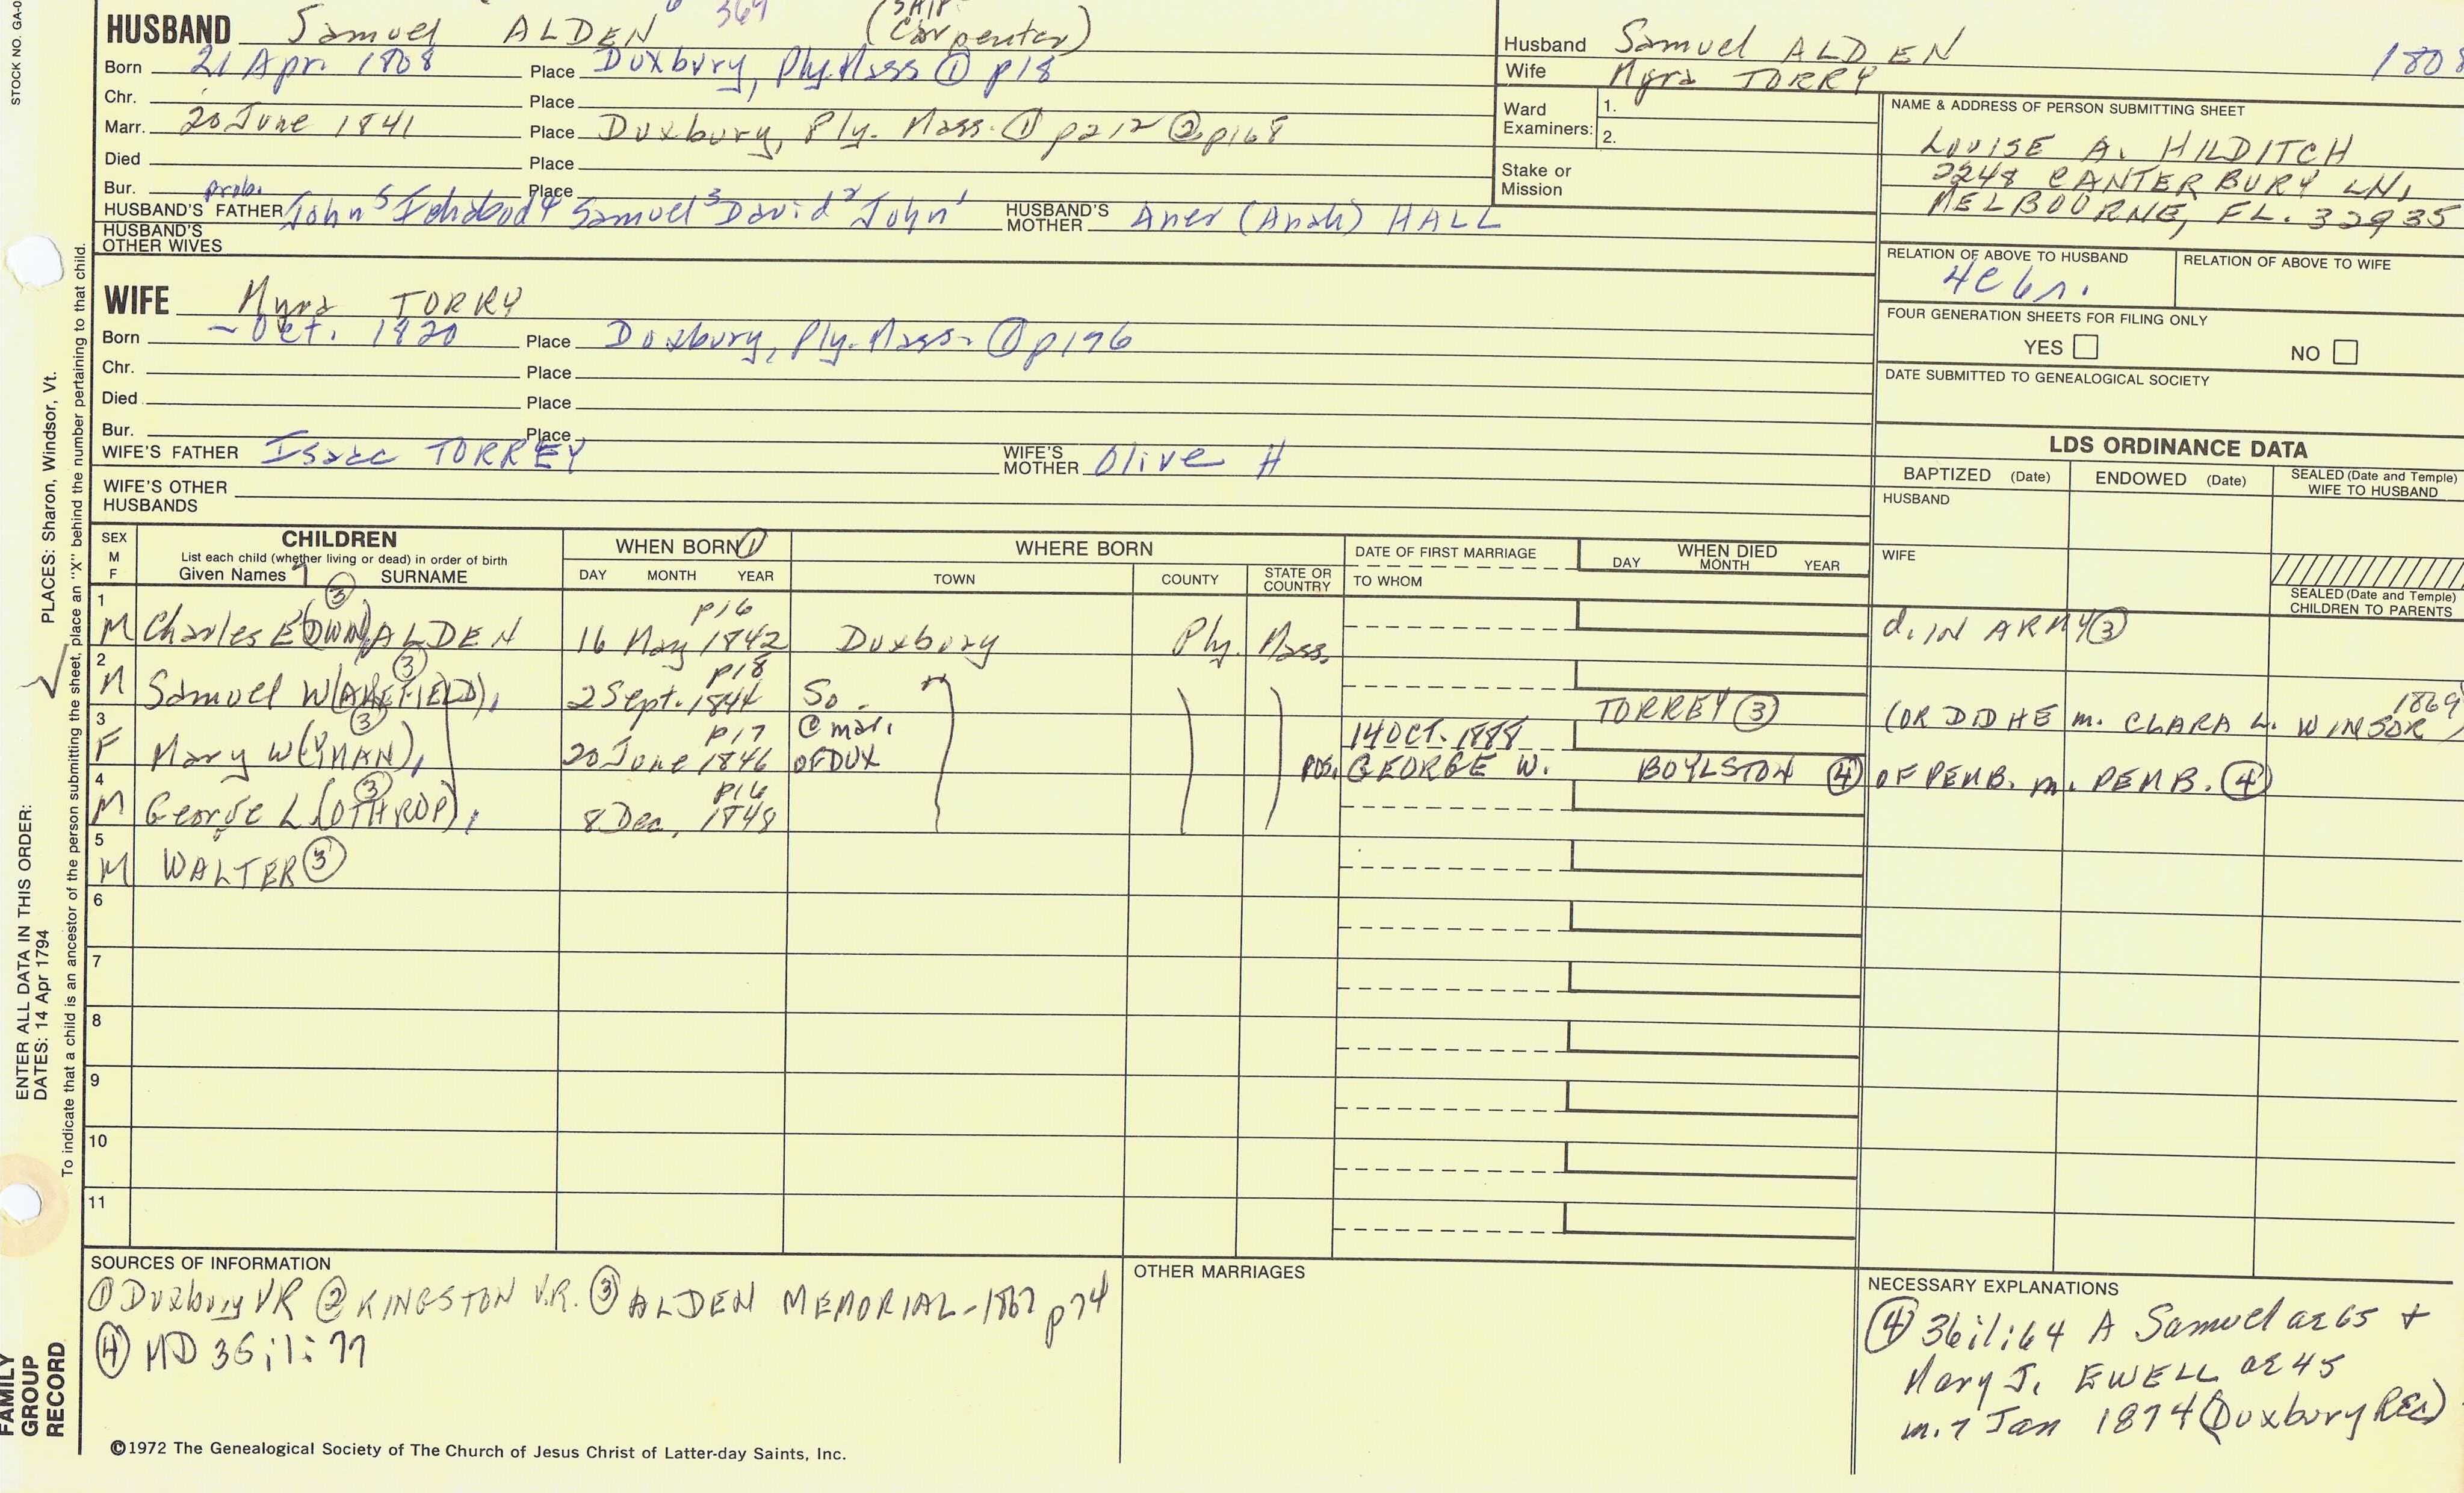 STOCK NO. GA-0
6 364
HUSBAND Samuel ALDEN (Ship Carpenter)
Born 21 Apr. 1808 Place Duxbury, Ply. Mass ① p18
Chr. Place
Marr. 20 June 1841 Place Duxbury, Ply. Mass. ① p212 ② p168
Died Place
Bur. Place
prob.
HUSBAND'S FATHER John 5 Ichabod 4 Samuel 3 David 2 John 1 HUSBAND'S MOTHER Aner (Anah) HALL
HUSBAND'S OTHER WIVES
Husband Samuel ALDEN 1808
Wife Myra TORRY
Ward Examiners: 1.
2.
Stake or Mission
NAME & ADDRESS OF PERSON SUBMITTING SHEET
LOUISE A. HILDITCH
2248 CANTERBURY LN,
MELBOURNE, FL. 32935
RELATION OF ABOVE TO HUSBAND RELATION OF ABOVE TO WIFE
4C6r.
FOUR GENERATION SHEETS FOR FILING ONLY
YES NO
DATE SUBMITTED TO GENEALOGICAL SOCIETY
WIFE Myra TORRY
Born ~ Oct. 1820 Place Duxbury, Ply. Mass. ① p176
Chr. Place
Died Place
Bur. Place
WIFE'S FATHER Isaac TORREY WIFE'S MOTHER Olive H
WIFE'S OTHER HUSBANDS
LDS ORDINANCE DATA
BAPTIZED (Date) ENDOWED (Date) SEALED (Date and Temple) WIFE TO HUSBAND
HUSBAND
WIFE
SEALED (Date and Temple) CHILDREN TO PARENTS
SEX M F
CHILDREN
List each child (whether living or dead) in order of birth
Given Names SURNAME
WHEN BORN ①
DAY MONTH YEAR
WHERE BORN
TOWN COUNTY STATE OR COUNTRY
DATE OF FIRST MARRIAGE
TO WHOM
WHEN DIED
DAY MONTH YEAR
1 M Charles E(DWIN) ③ ALDEN p16 16 May 1842 Duxbury Ply. Mass. d. IN ARMY ③
2 M Samuel W(AKEFIELD), ③ p18 2 Sept. 1844 So. TORREY ③ (OR DID HE m. CLARA L. WINSOR 1869)
3 F Mary W(YMAN), ③ p17 20 June 1846 @ mar. OF DUX 14 OCT. 1888 pos. GEORGE W. BOYLSTON ④ OF PEMB. m. PEMB. ④
4 M George L(OTHROP), ③ p16 8 Dec. 1848
5 M WALTER ③
6
7
8
9
10
11
SOURCES OF INFORMATION
① Duxbury VR ② KINGSTON V.R. ③ ALDEN MEMORIAL-1867 p74
④ MD 36:1:77
OTHER MARRIAGES
NECESSARY EXPLANATIONS
④ 36:1:64 A Samuel ae 65 +
Mary J. EWELL ae 45
m. 7 Jan 1874 (Duxbury Rec)
©1972 The Genealogical Society of The Church of Jesus Christ of Latter-day Saints, Inc.
FAMILY GROUP RECORD
ENTER ALL DATA IN THIS ORDER:
DATES: 14 Apr 1794
PLACES: Sharon, Windsor, Vt.
To indicate that a child is an ancestor of the person submitting the sheet, place an "X" behind the number pertaining to that child.